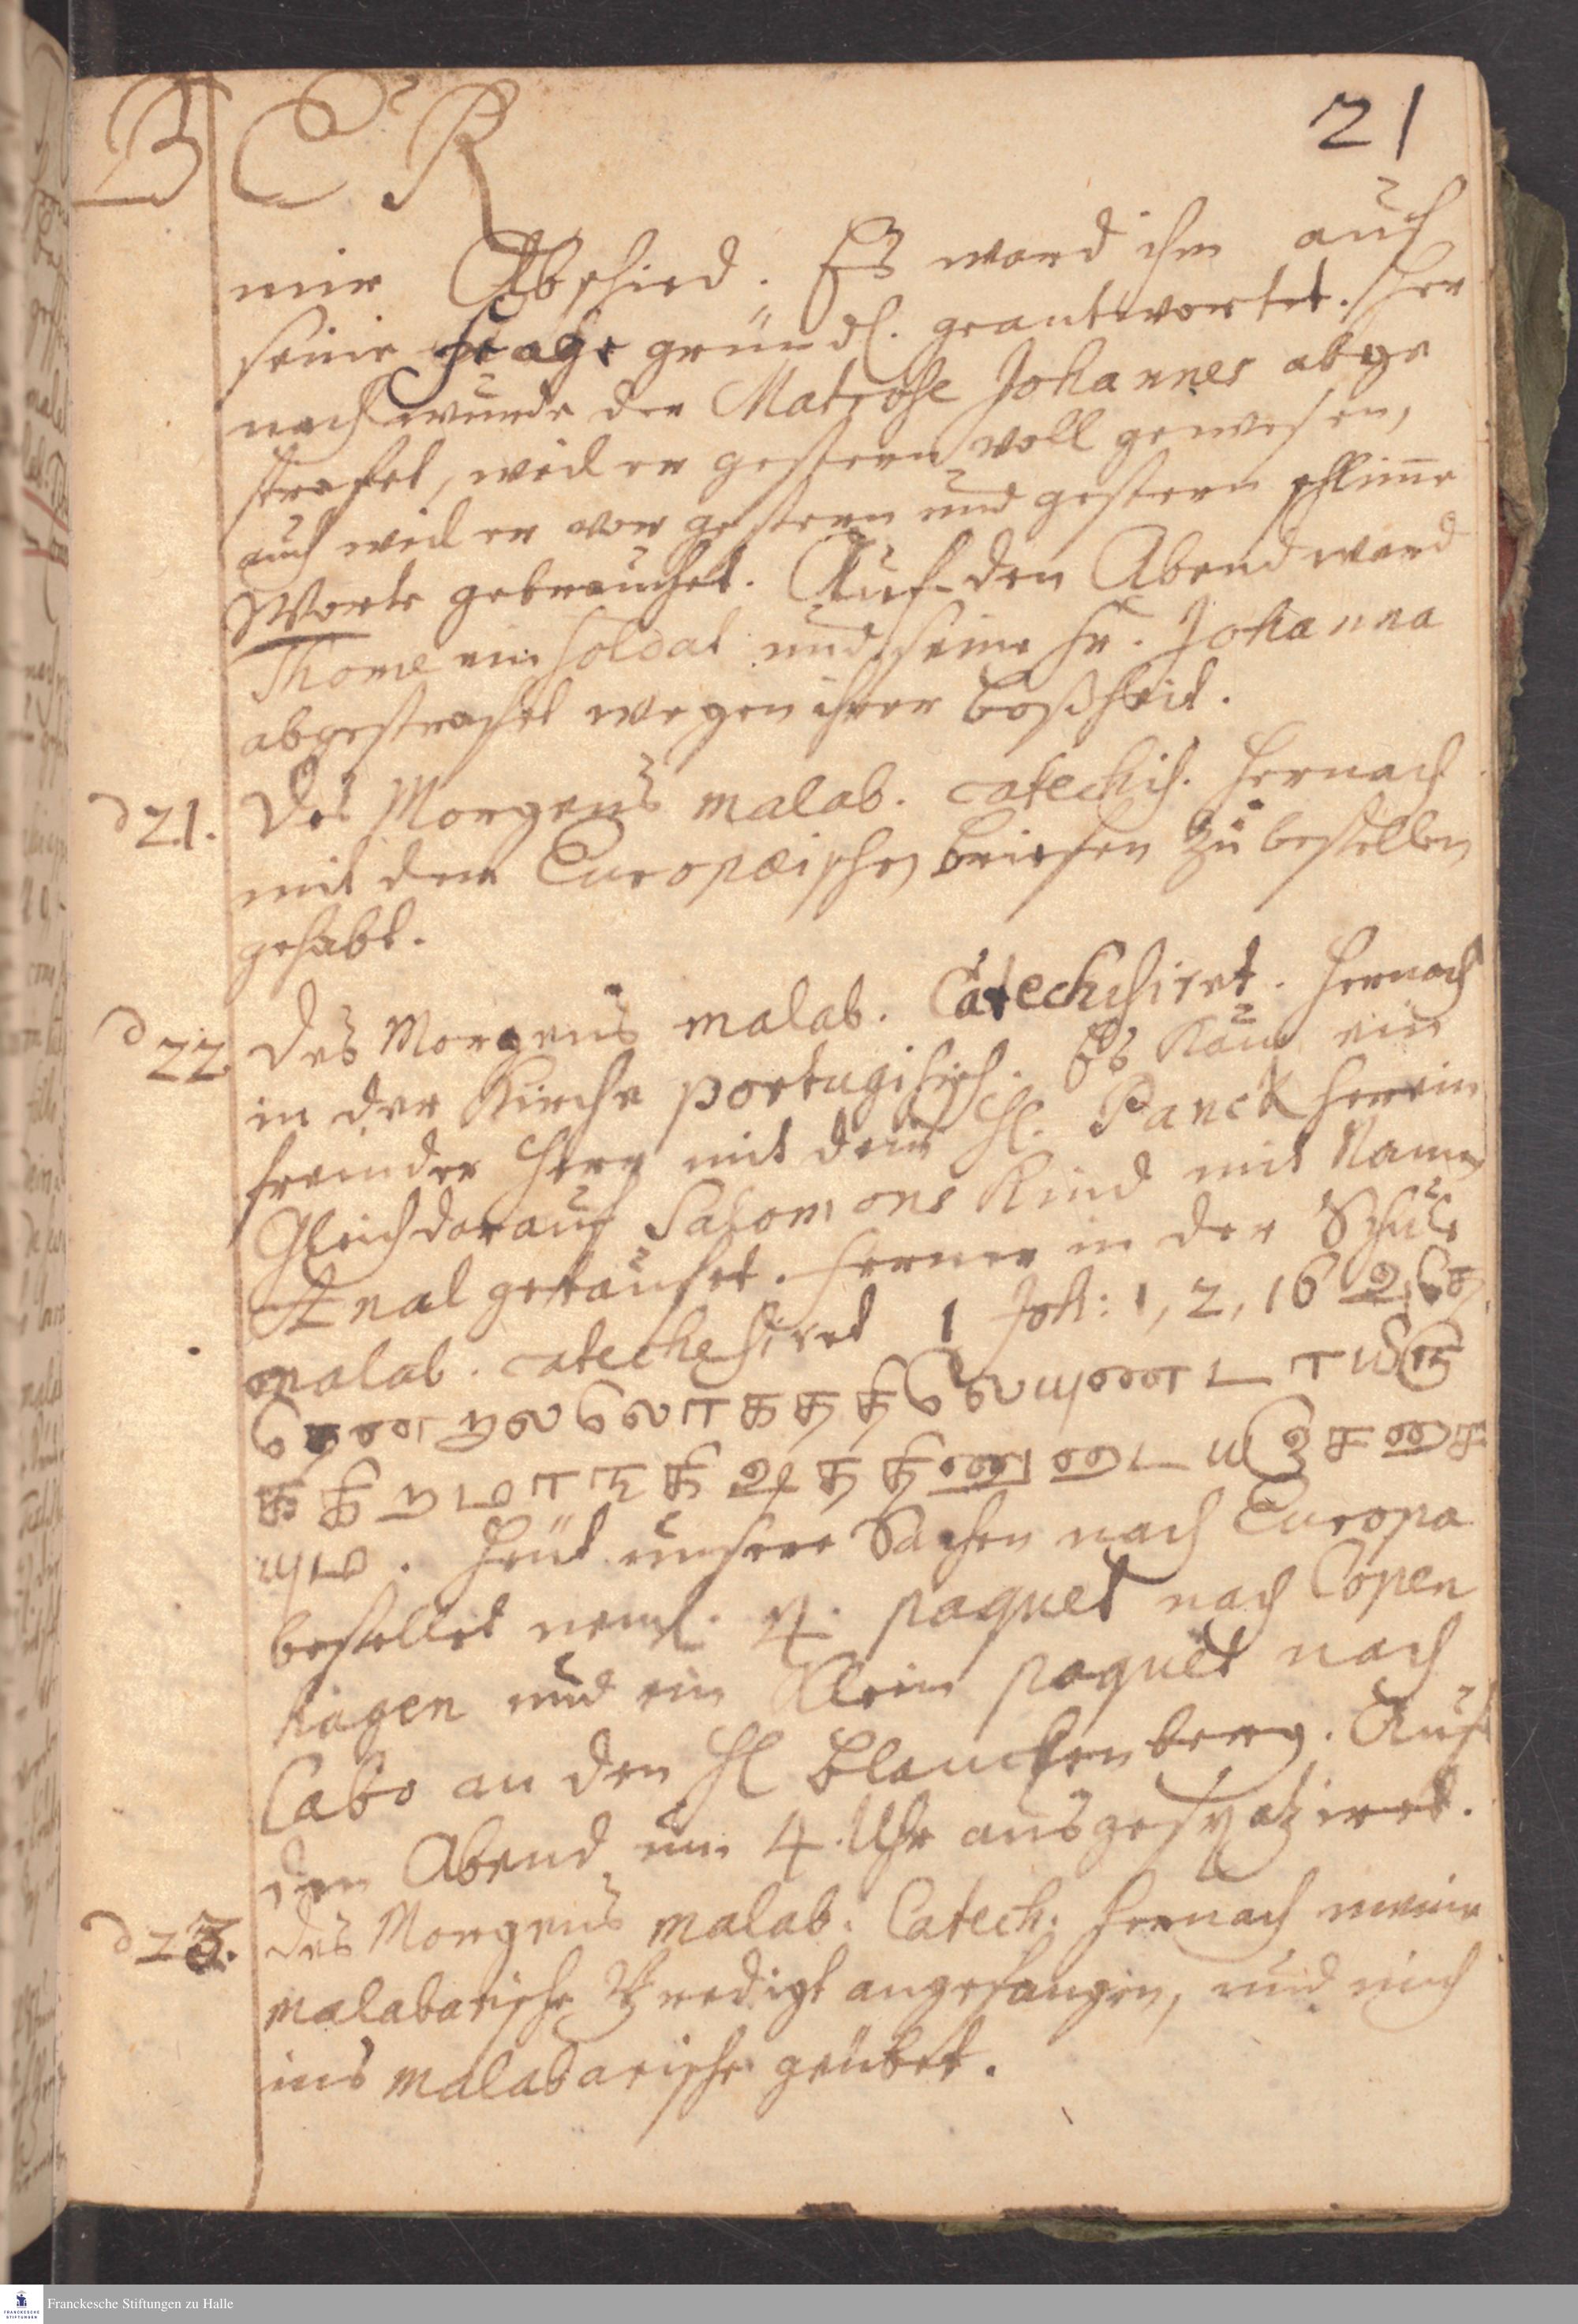 B C R
21
mir Abschied. Es ward ihm auch
seine Frage gründl. geantwortet. Her
nach wurde der Matrose Johannes abge
strafet, weil er gestern voll gewesen,
auch weil er vor gestern und gestern schlime
Worte gebrauchet. Auf den Abend ward
Thome ein Soldat und seine Fr. Johanna
abgestrafet wegen ihrer Boßheit.
d 21. Des Morgens malab. catechis. Hernach
mit den Europæischen Briefen zu bestellen
gehabt.
d 22. Des Morgens malab. Catechisiret. Hernach
in der Kirche portugisisch. Es kam ein
fremder Herr mit dem H. Panck herein
Gleich darauf Salomons Kind mit Namen
getaufet. Ferner in der Schule
malab. catechesiret 1 Joh: 1, 2, 16
. Heut unsere Sachen nach Europa
bestellet neml. 4. paquet nach Copen
hagen und ein Klein paquet nach
Cabo an den H Blanckenberg. Auf
den Abend um 4. Uhr ausgespatziret.
d 23. Des Morgens malab: Catech: Hernach meine
malabarische Predigt angefangen, und mich
ins malabarische geübet.
Franckesche Stiftungen zu Halle